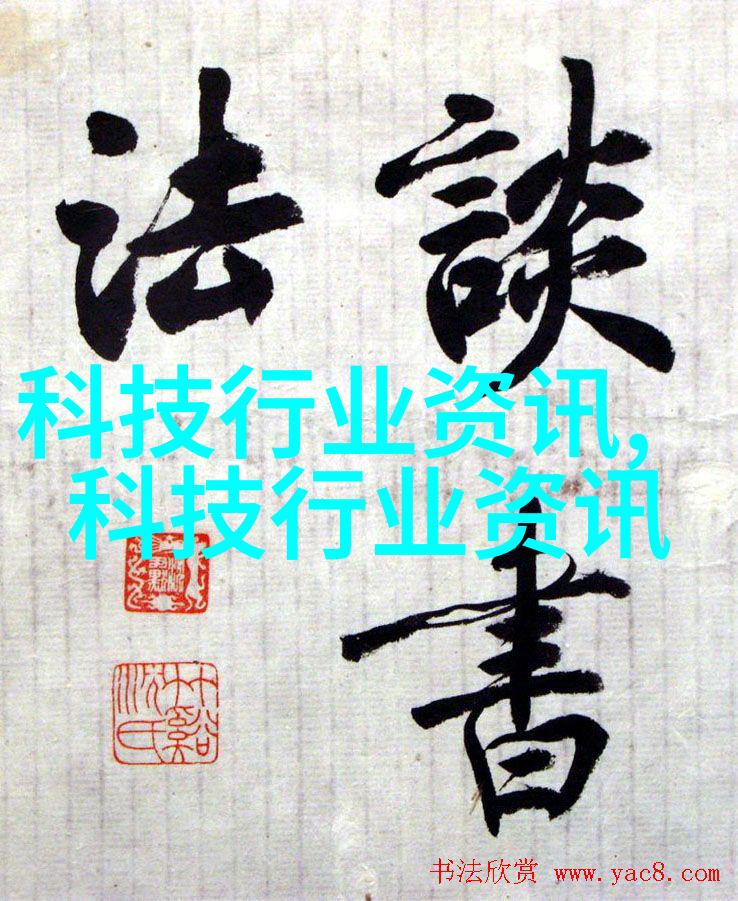 談書
法
科技行业资讯,
科技行业资讯
书法欣赏 www.yac8.com